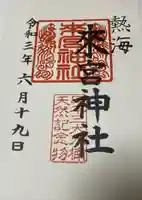 熱海
來宮神社
令和三年六月十九日
來宮神社
天然記念物